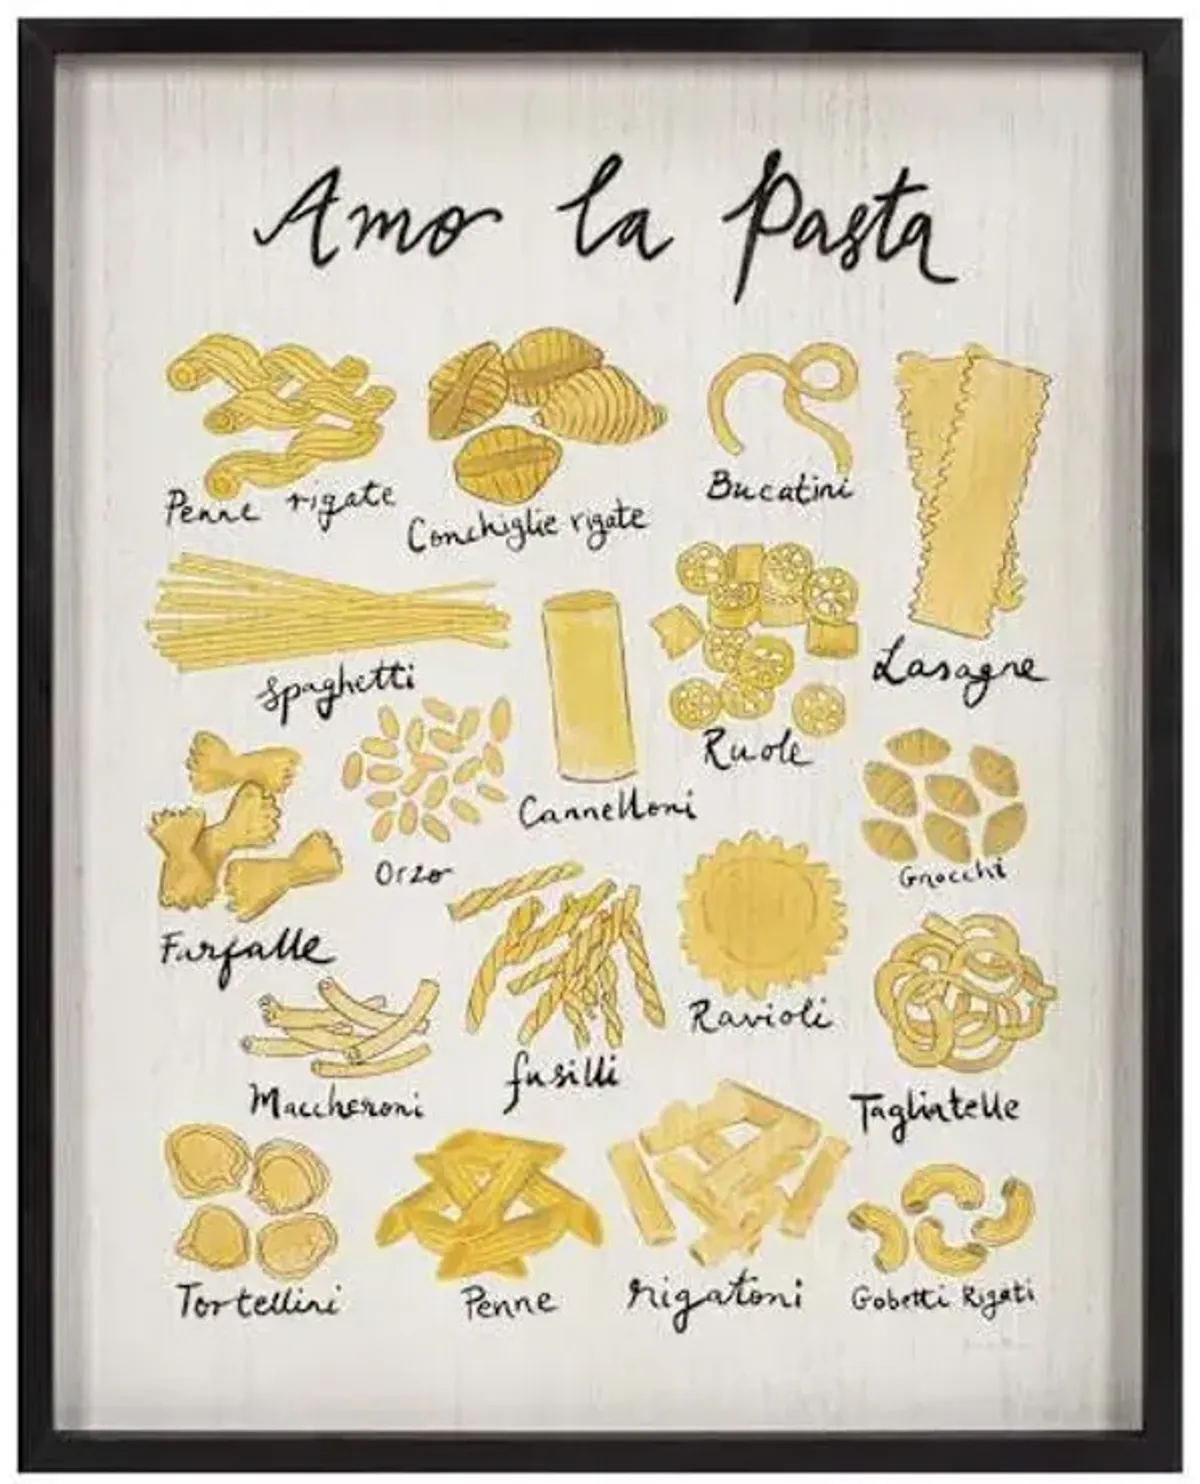 Amo la Pasta
Penne rigate
Conchiglie rigate
Bucatini
Lasagne
Spaghetti
Cannelloni
Ruole
Orzo
Gnocchi
Farfalle
fusilli
Ravioli
Maccheroni
Tagliatelle
Tortellini
Penne
rigatoni
Gobetti Rigati